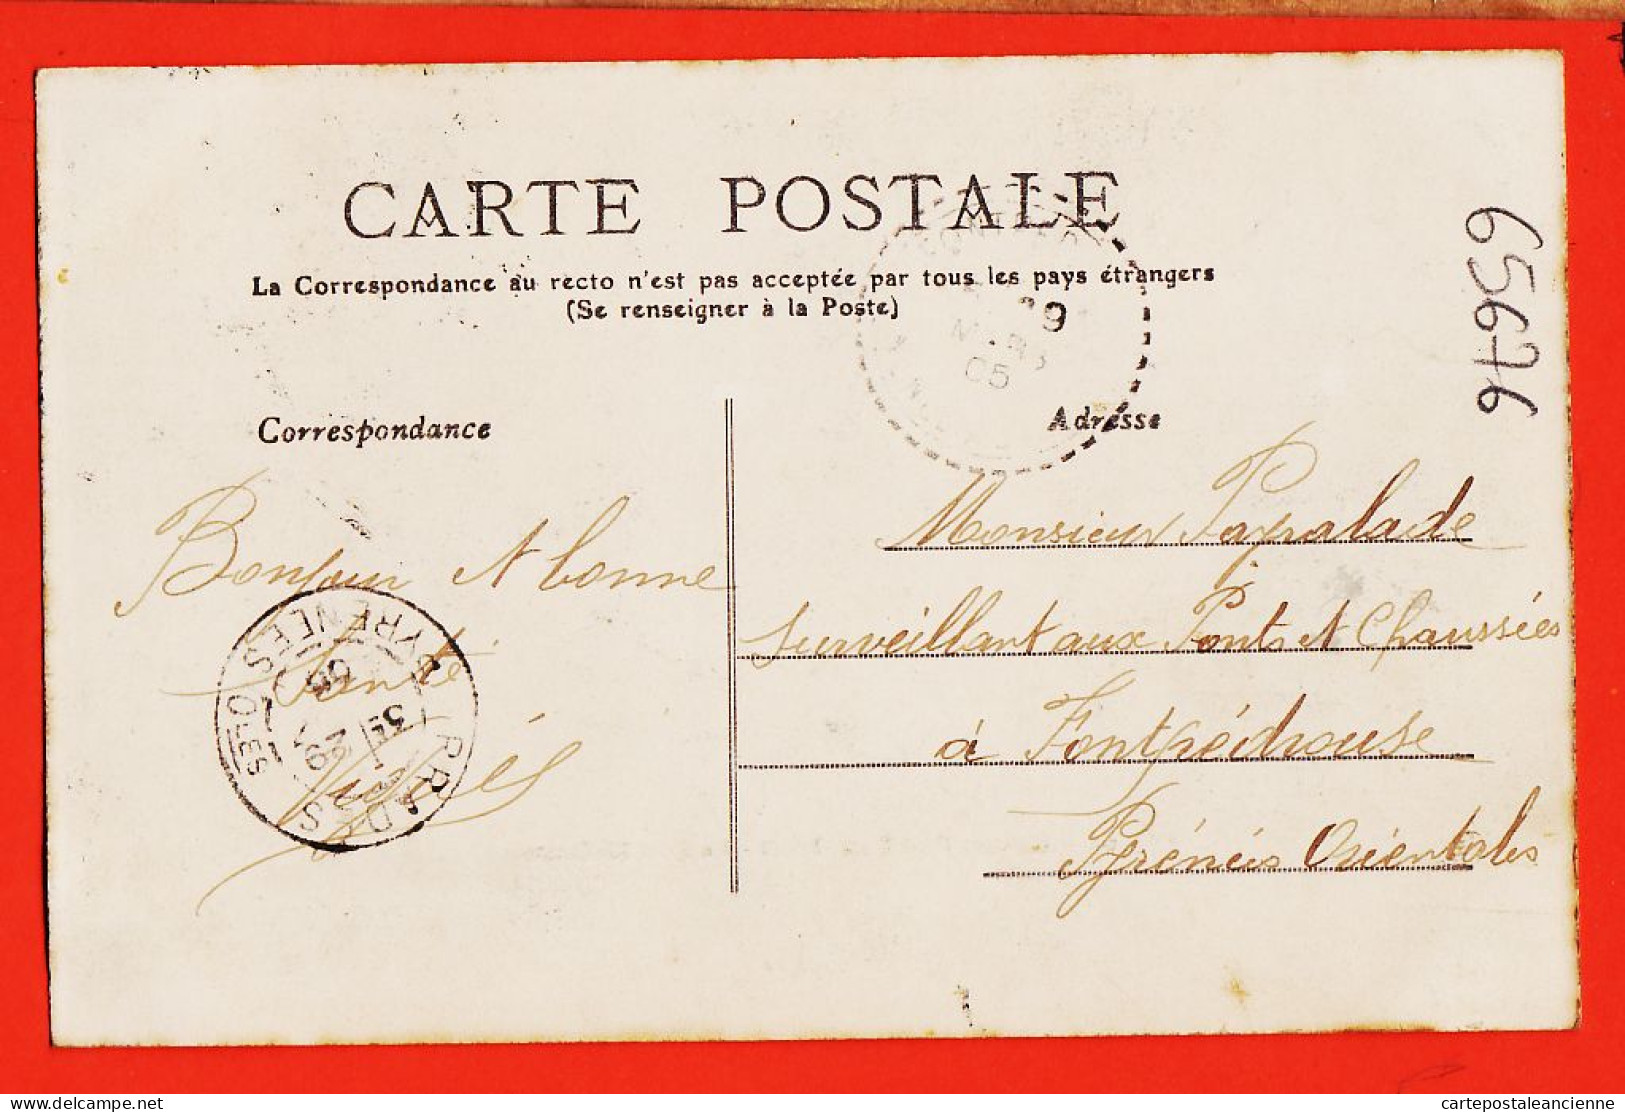 CARTE POSTALE
La Correspondance au recto n'est pas acceptée par tous les pays étrangers
(Se renseigner à la Poste)
65676
19
MARS
05
Correspondance
Adresse
Bonjour et bonne
Santé
Monsieur Papalade
Surveillant aux Ponts et Chaussées
à Fontpédrouse
Pyrénées Orientales
PRADES
PYRENEES O-LES
3E
19
05
delcampe.net
cartepostaleancienne